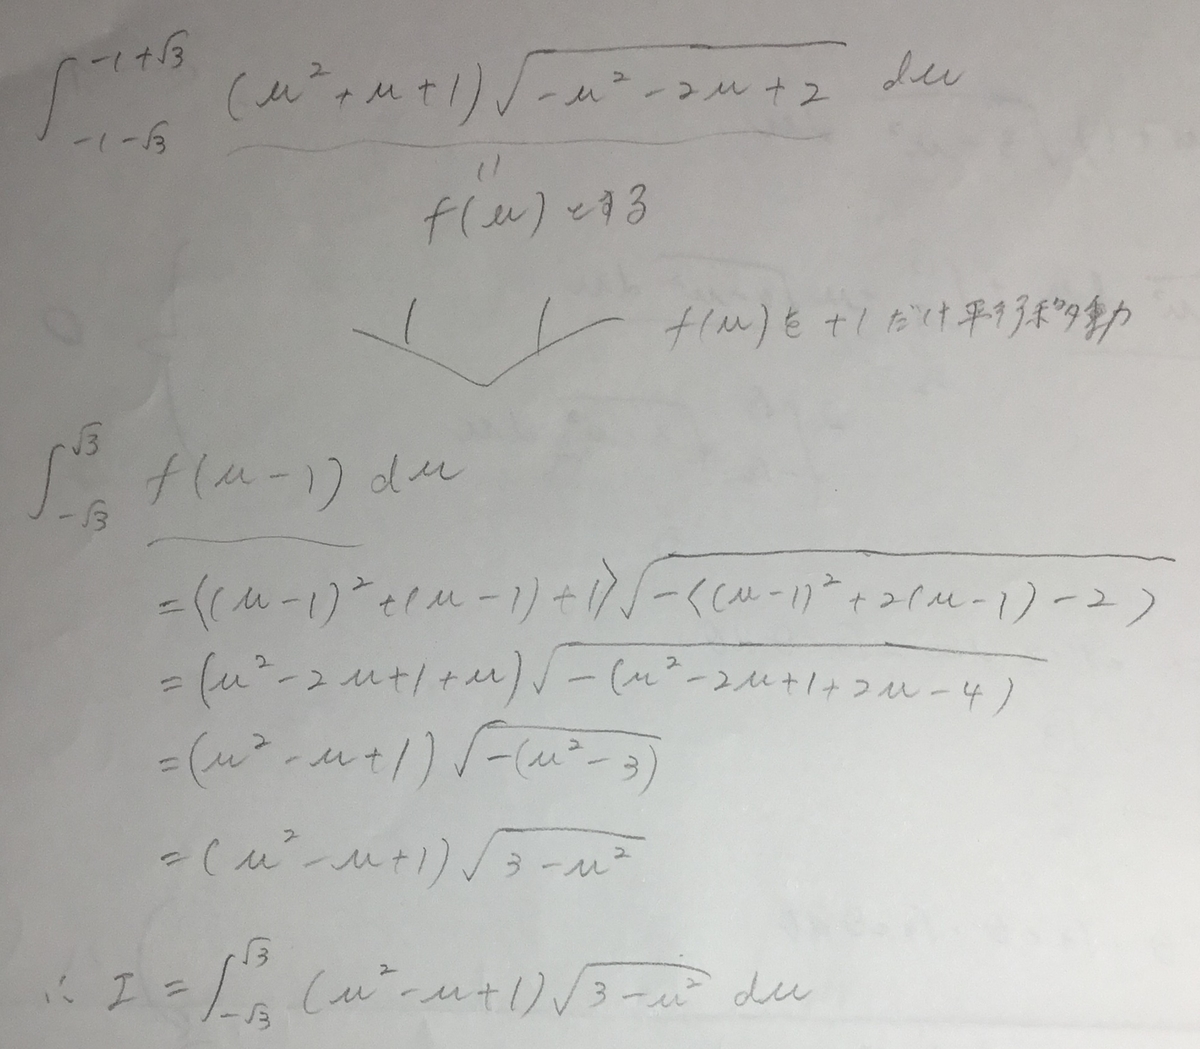 ∫_{-1-√3}^{-1+√3} (u²+u+1)√(-u²-2u+2) du
〃
f(u)とする
f(u)を+1だけ平行移動
∫_{-√3}^{√3} f(u-1) du
=((u-1)²+(u-1)+1)√(-((u-1)²+2(u-1)-2))
=(u²-2u+1+u)√(-(u²-2u+1+2u-4))
=(u²-u+1)√(-(u²-3))
=(u²-u+1)√(3-u²)
∴ I = ∫_{-√3}^{√3} (u²-u+1)√(3-u²) du